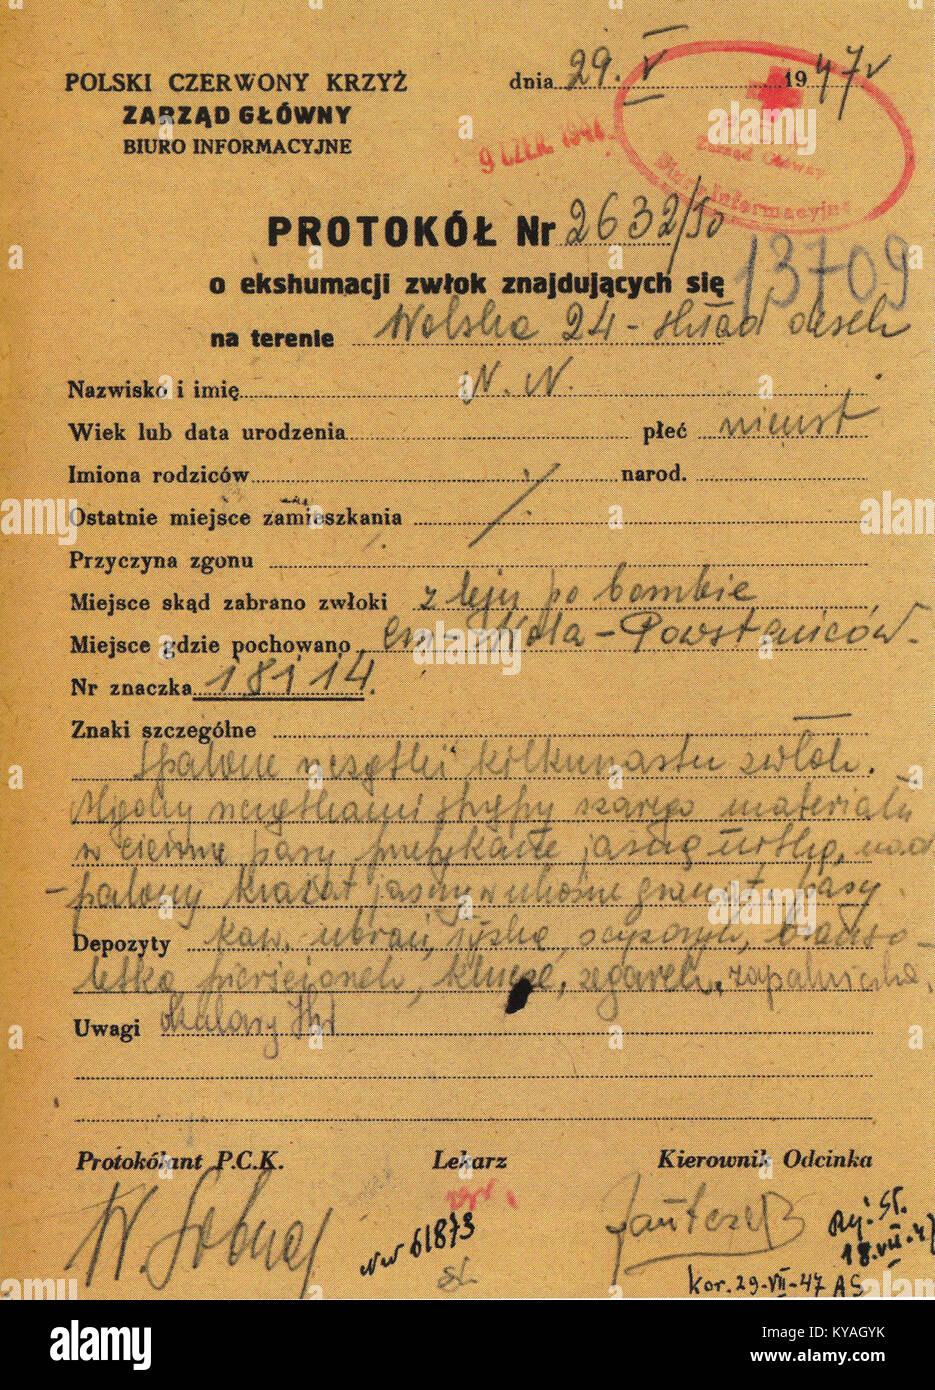 POLSKI CZERWONY KRZYŻ
ZARZĄD GŁÓWNY
BIURO INFORMACYJNE
dnia 29. V 1947 r
9 CZER. 194
Zarząd Główny
Biuro Informacyjne
PROTOKÓŁ Nr 2632/50
13709
o ekshumacji zwłok znajdujących się
na terenie Wolska 24 - skład desek
Nazwisko i imię N. N.
Wiek lub data urodzenia płeć nieust
Imiona rodziców narod.
Ostatnie miejsce zamieszkania
Przyczyna zgonu
Miejsce skąd zabrano zwłoki z leju po bombie
Miejsce gdzie pochowano cm - Wola - Powstańców.
Nr znaczka 18114.
Znaki szczególne
Spalone szczątki kilkunastu zwłok.
Między szczątkami strzępy szarego materiału
w ciemne pasy przetykane jasną nitką, nad
-palony krawat jasny w ukośne granat. pasy
Depozyty kaw. ubrań, łyżka, scyzoryk, branso-
letka pierścionek, klucze, zegarek, zapalniczka,
Uwagi okulary
Protokólant P.C.K. Lekarz Kierownik Odcinka
61873
18.VII.47
kor. 29-VII-47 AS
alamy
Image ID: KYAGYK
www.alamy.com